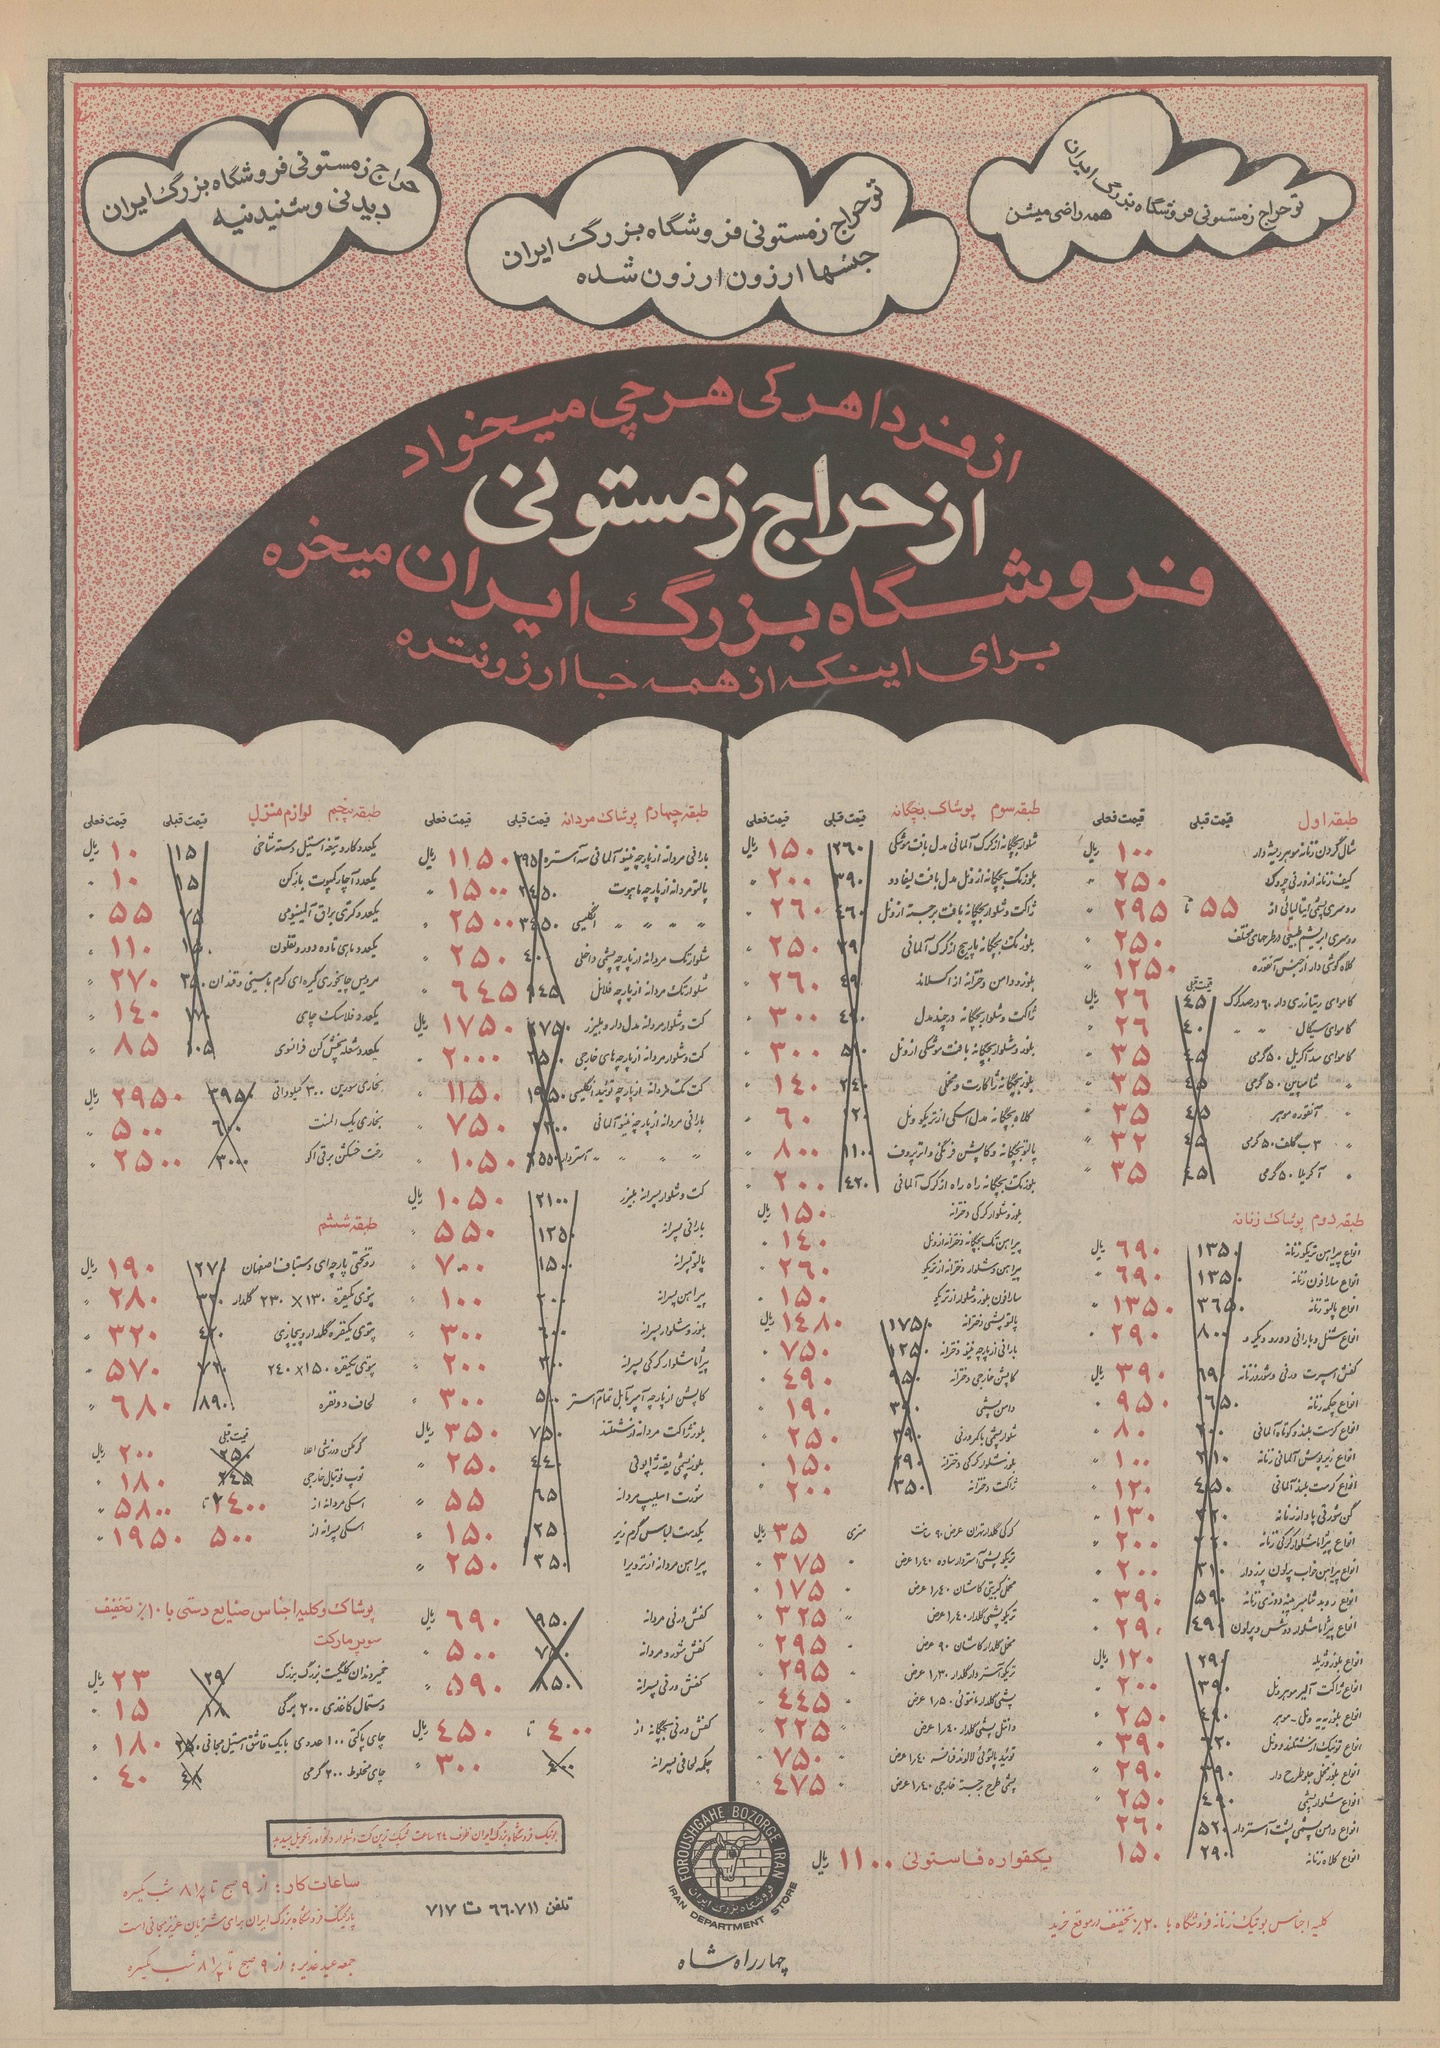 تو حراج زمستونی فروشگاه بزرگ ایران
همه راضی میشن
تو حراج زمستونی فروشگاه بزرگ ایران
جنسها ارزون ارزون شده
حراج زمستونی فروشگاه بزرگ ایران
دیدنی و شنیدنیه
از فردا هر کی هر چی میخواد
از حراج زمستونی
فروشگاه بزرگ ایران میخره
برای اینکه از همه جا ارزونتره
طبقه اول قیمت قبلی قیمت فعلی
شال گردن زنانه موهر ریشه دار ۱۰۰ ریال
کیف زنانه از ورنی چروک ۲۵۰ "
روسری پشمی ایتالیائی از ۵۵ تا ۲۹۵ "
روسری ابریشم طبیعی در طرحهای مختلف ۲۵۰ "
کلاه گوشی دار از جنس آنقوره ۱۲۵۰ "
قیمت قبلی
کاموای ریتا زری دار ۶۰ درصد کرک ۴۵ ۲۶ ریال
کاموای سیکال " " ۴۰ ۲۶ "
کاموای سه آکریل ۵۰ گرمی ۴۵ ۳۵ "
" شامپاین ۵۰ گرمی ۴۵ ۳۵ "
" آنقوره موهر ۴۵ ۳۵ "
" ۳ ب گلف ۵۰ گرمی ۴۵ ۳۲ "
" آکریلا ۵۰ گرمی ۴۵ ۳۵ "
طبقه دوم پوشاک زنانه
انواع پیراهن تریکو زنانه ۱۳۵۰ ۶۹۰ ریال
انواع سارافون زنانه ۱۳۵۰ ۶۹۰ "
انواع پالتو زنانه ۳۶۵۰ ۱۳۵۰ "
انواع شنل و بارانی دورو دیگر و ۸۰۰ ۲۹۰ "
کفش اسپرت ورنی و شورو زنانه ۶۹۰ ۳۹۰ ریال
انواع چکمه زنانه ۱۶۵۰ ۹۵۰ "
انواع کرست بلند و کوتاه آلمانی ۲۰۰ ۸۰ "
انواع زیرپوش آلمانی زنانه ۲۱۰ ۱۰۰ "
انواع کرست بلند آلمانی ۴۵۰ ۱۲۰ "
گن شورتی پا دار زنانه ۲۲۰ ۱۳۰ "
انواع پیژاما شلوار کرکی زنانه ۲۲۰ ۲۰۰ "
انواع پیراهن خواب پرلون پرز دار ۳۱۰ ۲۰۰ "
انواع روبدشامبر پنبه دوزی زنانه ۵۹۰ ۳۹۰ "
انواع پیژاما شلوار دوشس و پرلون ۴۹۰ ۲۹۰ "
انواع بلوز ژرژیله ۲۹۰ ۱۲۰ ریال
انواع ژاکت آلپر موهر ونل ۳۹۰ ۲۰۰ "
انواع بلوز یقه ونل - موهر ۴۹۰ ۲۵۰ "
انواع تونیک از شتلند و ونل ۶۲۰ ۳۹۰ "
انواع بلوز مخمل جلو طرح دار ۳۹۰ ۲۹۰ "
انواع شلوار پشمی ۴۹۰ ۲۵۰ "
انواع دامن پشمی پشت آستردار ۵۲۰ ۲۶۰
انواع کلاه زنانه ۲۹۰ ۱۵۰
کلیه اجناس بوتیک زنانه فروشگاه با ۲۰٪ تخفیف در موقع خرید
طبقه سوم پوشاک بچگانه قیمت قبلی قیمت فعلی
شلوار بچگانه از کرک آلمانی مدل بافت موشکی ۲۶۰ ۱۵۰ ریال
بلوز تک بچگانه از ونل مدل بافت لیفا دو ۳۹۰ ۲۰۰ "
ژاکت و شلوار بچگانه بافت برجسته از ونل ۴۶۰ ۲۶۰ "
بلوز تک بچگانه پارپیچ از کرک آلمانی ۳۹۰ ۲۵۰ "
بلوز و دامن دخترانه از اسلاند ۴۹۰ ۲۶۰ "
ژاکت و شلوار بچگانه در چند مدل ۴۹۰ ۳۰۰ "
بلوز و شلوار بچگانه بافت موشکی از ونل ۵۹۰ ۳۰۰ "
بلوز بچگانه ژاکارت و مخملی ۲۴۰ ۱۴۰ "
کلاه بچگانه مدل اسکی از تریکو ونل ۱۲۰ ۶۰ "
پالتو بچگانه و کاپشن فرنگی و اترپروف ۱۱۰۰ ۸۰۰ "
بلوز تک بچگانه راه راه از کرک آلمانی ۴۲۰ ۲۰۰ "
بلوز و شلوار کرکی دخترانه ۱۵۰ ریال
پیراهن تک بچگانه دخترانه از ونل ۱۴۰ "
پیراهن و شلوار دخترانه از تریکو ۲۶۰ "
سارافون بلوز و شلوار از تریکو ۱۵۰ "
پالتو پشمی دخترانه ۱۷۵۰ ۱۴۸۰ ریال
بارانی از پارچه فیفو دخترانه ۱۲۵۰ ۷۵۰ "
کاپشن خارجی دخترانه ۹۵۰ ۴۹۰ "
دامن پشمی ۳۴۰ ۱۹۰ "
شلوار پشمی با کمر ورنی ۳۹۰ ۲۵۰ "
بلوز و شلوار کرکی دخترانه ۲۹۰ ۱۵۰ "
ژاکت دخترانه ۳۵۰ ۲۰۰ "
کرکی گلدار تهران عرض ۹۰ سانت متری ۳۵ ریال
تریکو پشمی آستردار ساده ۱/۴۰ عرض " ۳۷۵ "
مخمل کبریتی کاشان ۱/۴۰ عرض " ۱۷۵ "
تریکو پشمی گلدار ۱/۴۰ عرض " ۳۲۵ "
مخمل گلدار کاشان ۹۰ عرض " ۲۹۵ "
تریکو آستر دار گلدار ۱/۳۰ عرض " ۲۹۵ "
پشمی گلدار مانتوئی ۱/۵۰ عرض " ۴۴۵ "
دانتل پشمی گلدار ۱/۴۰ عرض " ۲۲۵ "
توئید پالتوئی لالوند فرانسه ۱/۴۰ عرض " ۷۵۰ "
پشمی طرح برجسته خارجی ۱/۴۰ عرض " ۴۷۵ "
یکقواره فاستونی ۱۱۰۰ ریال
طبقه چهارم پوشاک مردانه قیمت قبلی قیمت فعلی
بارانی مردانه از پارچه فیفو آلمانی سه آستره ۳۹۵۰ ۱۱۵۰ ریال
پالتو مردانه از پارچه ماهوت ۲۴۵۰ ۱۵۰۰ "
" " " انگلیسی ۳۴۵۰ ۲۵۰۰ "
شلوار تک مردانه از پارچه پشمی داخلی ۴۰۰ ۲۵۰ "
شلوار تک مردانه از پارچه فلانل ۹۴۵ ۶۴۵ "
کت و شلوار مردانه مدل دار و بلیزر ۲۷۵۰ ۱۷۵۰ ریال
کت و شلوار مردانه از پارچه های خارجی ۳۵۰۰ ۲۰۰۰ "
کت تک مردانه از پارچه توئید انگلیسی ۱۹۵۰ ۱۱۵۰ "
بارانی مردانه از پارچه فیفو آلمانی ۲۲۰۰ ۷۵۰ "
" " " " آستردار ۲۵۵۰ ۱۰۵۰ "
کت و شلوار پسرانه بلیزر ۲۱۰۰ ۱۰۵۰ ریال
بارانی پسرانه ۱۲۵۰ ۵۵۰ "
پالتو پسرانه ۱۵۰۰ ۷۰۰ "
پیراهن پسرانه ۲۰۰ ۱۰۰ "
بلوز و شلوار پسرانه ۶۰۰ ۳۰۰ "
پیژاما شلوار کرکی پسرانه ۳۰۰ ۲۰۰ "
کاپشن از پارچه آمپرمآبل تمام آستر ۵۰۰ ۳۰۰ "
بلوز ژاکت مردانه از شتلند ۷۵۰ ۳۵۰ ریال
بلوز پشمی یقه ژاپونی ۴۴۰ ۲۵۰ "
شورت اسلیپ مردانه ۶۵ ۵۵ "
یکدست لباس گرم زیر ۲۵۰ ۱۵۰ "
پیراهن مردانه از ترویرا ۳۵۰ ۲۵۰ "
کفش ورنی مردانه ۹۵۰ ۶۹۰ ریال
کفش شورو مردانه ۷۵۰ ۵۰۰ "
کفش ورنی پسرانه ۸۵۰ ۵۹۰ "
کفش ورنی بچگانه از ۴۰۰ تا ۴۵۰ ریال
چکمه لحافی پسرانه ۴۰۰ ۳۰۰ "
طبقه پنجم لوازم منزل قیمت قبلی قیمت فعلی
یکعدد کارد تیغه استیل دسته شاخی ۱۵ ۱۰ ریال
یکعدد آچار کمپوت بازکن ۱۵ ۱۰ "
یکعدد کتری براق آلمینیومی ۷۵ ۵۵ "
یکعدد ماهی تاوه دورو تفلون ۱۵۰ ۱۱۰ "
سرویس چایخوری گیره ای کرم با سینی و قندان ۳۵۰ ۲۷۰ "
یکعدد فلاسک چای ۱۷۰ ۱۴۰ "
یکعدد شعله پخش کن فرانسوی ۱۰۵ ۸۵ "
بخاری سورین ۳۰۰ کیلوواتی ۳۹۵۰ ۲۹۵۰ ریال
بخاری یک المنت ۶۰۰ ۵۰۰ "
رخت خشکن برقی آکو ۳۰۰۰ ۲۵۰۰ "
طبقه ششم
روتختی پارچه ای دستباف اصفهان ۲۷۰ ۱۹۰ ریال
پتوی یکنفره ۱۳۰ × ۲۳۰ گلدار ۳۲۰ ۲۸۰ "
پتوی یکنفره گلدار و پیچازی ۴۲۰ ۳۲۰ "
پتوی یکنفره ۱۵۰×۲۴۰ ۷۲۰ ۵۷۰ "
لحاف دونفره ۸۹۰ ۶۸۰ "
قیمت قبلی
گرمکن ورزشی اعلا ۲۵۰ ۲۰۰ ریال
توپ فوتبال خارجی ۲۴۵ ۱۸۰ "
اسکی مردانه از ۲۴۰۰ تا ۵۸۰۰ "
اسکی پسرانه از ۵۰۰ " ۱۹۵۰ "
پوشاک و کلیه اجناس صنایع دستی با ۱۰٪ تخفیف
سوپر مارکت
خمیر دندان کلگیت بزرگ بزرگ ۲۹ ۲۳ ریال
دستمال کاغذی ۲۰۰ برگی ۱۸ ۱۵ "
چای پاکتی ۱۰۰ عددی با یک قاشق استیل مجانی ۲۵۰ ۱۸۰ "
چای مخلوط ۲۰۰ گرمی ۴۸ ۴۰ "
بوتیک فروشگاه بزرگ ایران ظرف ۲۴ ساعت شیک ترین کت و شلوار دلخواه را تحویل میدهد
ساعات کار: از ۹ صبح تا ۸ ۱/۲ شب یکسره
پارکینگ فروشگاه بزرگ ایران برای مشتریان عزیز مجانی است
جمعه عید غدیر: از ۹ صبح تا ۸ ۱/۲ شب یکسره
تلفن ۶۶۰۷۱۱ تا ۷۱۷
FOROUSHGAHE BOZORGE IRAN
فروشگاه بزرگ ایران
IRAN DEPARTMENT STORE
چهارراه شاه